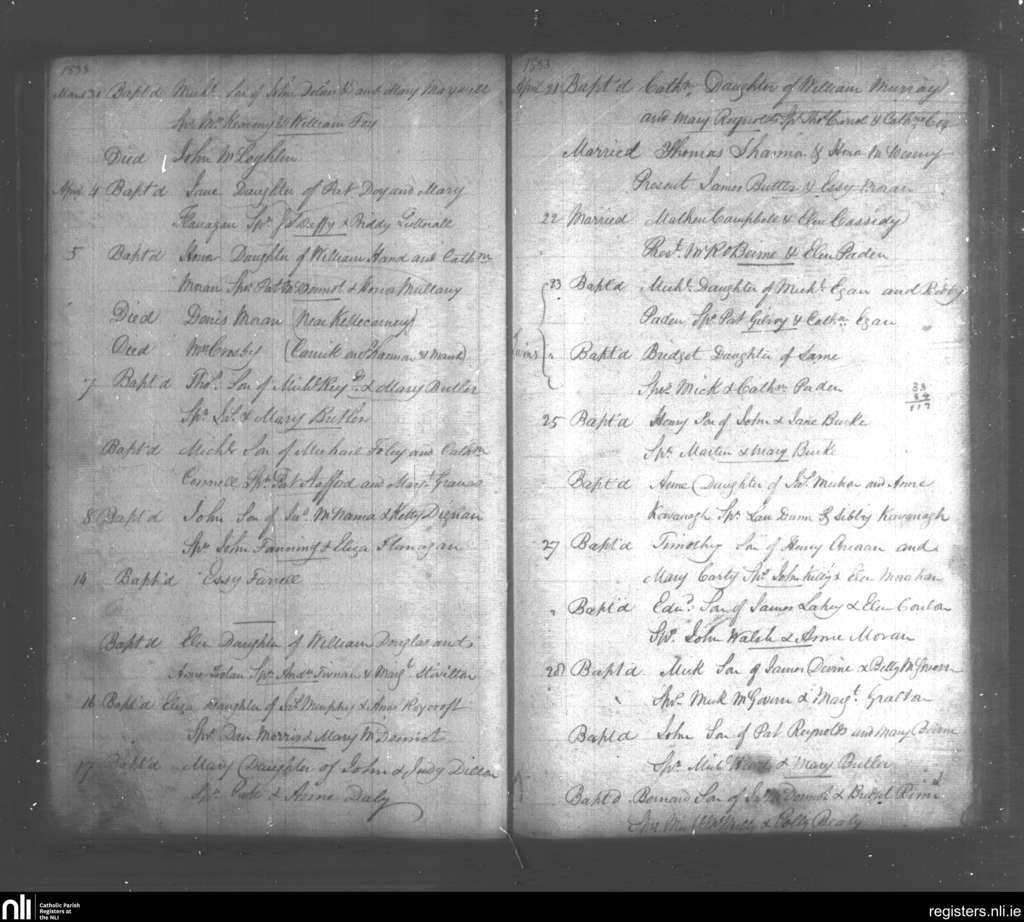 1833
March 31 Bapt'd Mich.l Son of John Dolan & and Mary Maxwell
Sp.rs & William Foy
Died John McLoghlin
April 4 Bapt'd Jane Daughter of Pat Doy and Mary
Flanagan Sp.rs Duffy & Biddy
5 Bapt'd Honor Daughter of William Hand and Cath.n
Moran Sp.rs Pat McDermot & Honor Mullany
Died Denis Moran (Near
Died Mr Crosby (Carrick on Shannon
7 Bapt'd Tho.s Son of Mich.l & Mary Butler
Sp.rs Ja.s & Mary Butler
Bapt'd Mich.l Son of Michael Foley and Cath.n
Connell Sp.rs Pat Stafford and Marg.t
8 Bapt'd John Son of Ja.s McNama & Kitty Dignan
Sp.rs John Fanning & Eliza Flanagan
14 Bapt'd Essy Farrell
Bapt'd Elen Daughter of William Douglas and
Anne Dolan Sp.rs And.w & Marg.t
16 Bapt'd Eliza Daughter of Ja.s Murphy & Anne Roycroft
Sp.rs Dan Morris & Mary McDermot
17 Bapt'd Mary Daughter of John & Judy Dillon
Sp.rs & Anne Daly
1833
April 21 Bapt'd Cath.n Daughter of William Murray
and Mary Reynolds Sp.rs Tho.s & Cath.ne Cox
Married Thomas Shannon & Hono
Present James Butler & Essy Moran
22 Married Mathew Campbell & Elen Cassidy
Pres.t Beirne & Elen Paden
23 Bapt'd Mich.l Daughter of Mich.l Egan and Kitty
Paden Sp.rs Pat Gilroy & Cath.n Egan
Twins " Bapt'd Bridget Daughter of Same
Sp.rs Mick & Cath.n Paden
33
84
117
25 Bapt'd Henry Son of John & Jane Burke
Sp.rs Martin & Mary Burke
Bapt'd Anne Daughter of Ja.s Meehan and Anne
Kavanagh Sp.rs Lau Dunn & Sibby Kavanagh
27 Bapt'd Timothy Son of Henry and
Mary Carty Sp.rs John Kelly & Elen Monahan
" Bapt'd Edw.d Son of James Lahey & Elen Conlon
Sp.rs John Walsh & Anne Moran
28 Bapt'd Mick Son of James Devine & Betty McGovern
" Sp.rs Mick McGovern & Marg.t Gralton
Bapt'd John Son of Pat Reynolds and Mary Beirne
Sp.rs Mich.l & Mary Butler
Bapt'd Bernard Son of McDermot & Bridget
Sp.rs & Beaty
nli
Catholic Parish
Registers at
the NLI
registers.nli.ie